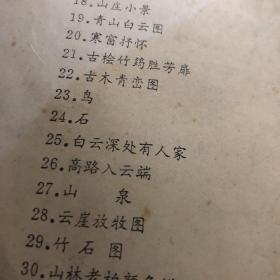 18.山庄小景
19.青山白云图
20.寒富抒怀
21.古桧竹筠胜芳扉
22.古木青峦图
23.鸟
24.石
25.白云深处有人家
26.高路入云端
27.山 泉
28.云崖放牧图
29.竹石图
30.山林老柏颜色